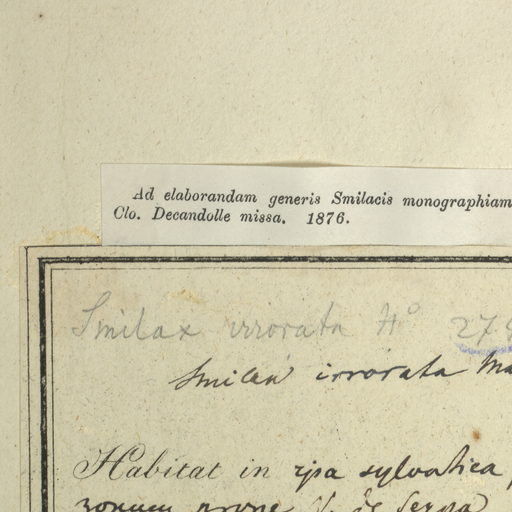 Ad elaborandam generis Smilacis monographiam
Clo. Decandolle missa. 1876.
Smilax irrorata No 27
Smilax irrorata Ma
Habitat in ripa sylvatica
prope de Serpa